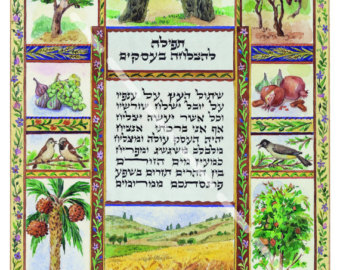 תפילה
להצלחה בעסקים
שיתול העץ על ענפיו
על יובל ישלח שורשיו
וכל אשר יעשה יצליח
אף אני ברכתי אצליח
יהיה העסק עולה ומצליח
מלבלב משגשג ומפריח
כמעין מים הזורם
בין ההרים יזרום בשפע
פרנסתכם ממרומים